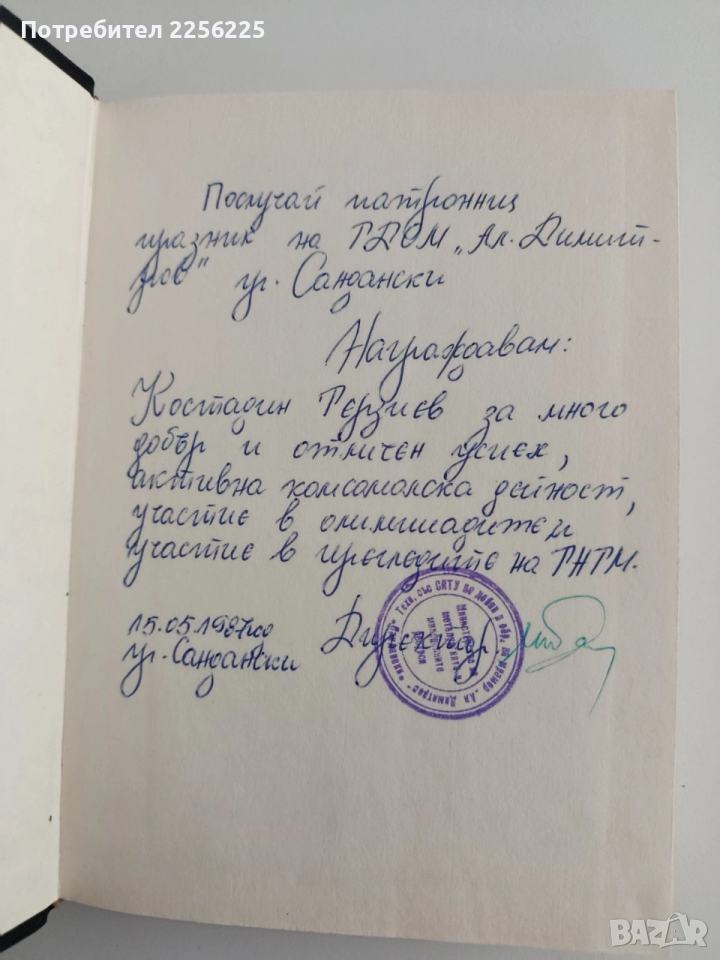 Потребител 2256225
Послучай патронниц
празник на ТДОМ „Ал. Димит-
ров" гр. Сандански
Награждавам:
Костадин Терзиев за много
добър и отличен успех,
активна комсомолска дейност,
участие в олимпиадите и
участие в прегледите на ТНТМ.
15.05.1987год
гр. Сандански
Директор
Техн. със СПТУ по добив и обр. на мрамор „Ал Димитров"
BAZAR